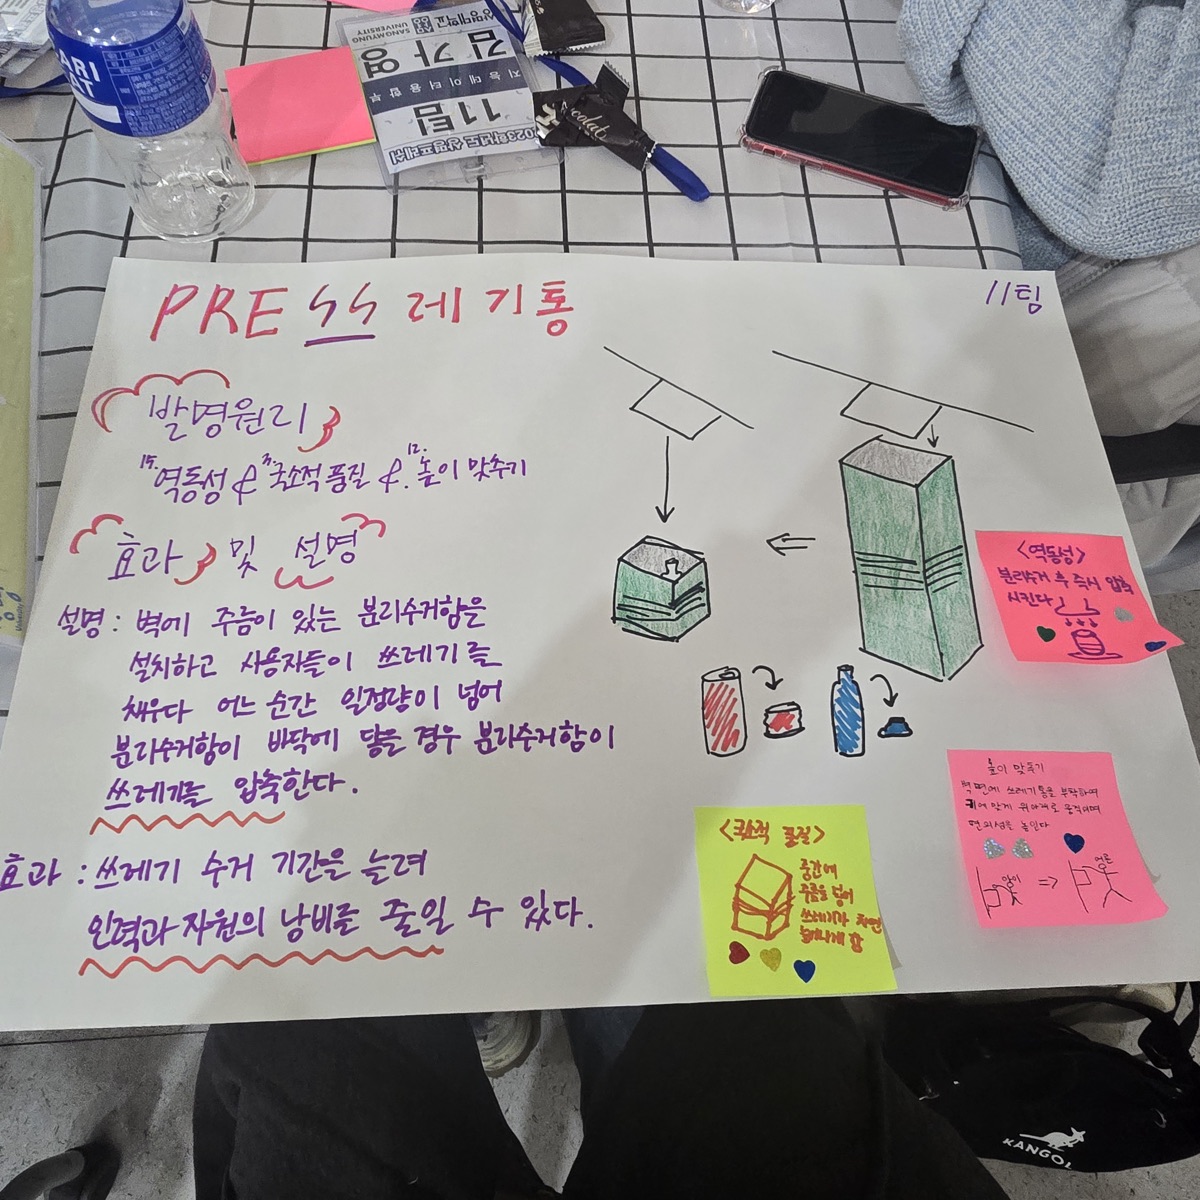 상명대학교
SANGMYUNG
UNIVERSITY
김가영
지능데이터융합부
11팀
2023학년도 상명프레쉬
PRE쓰레기통
11팀
발명원리
15. 역동성 & 3. 국소적 품질 & 12. 높이 맞추기
효과 및 설명
설명 : 벽에 주름이 있는 분리수거함을
설치하고 사용자들이 쓰레기를
채우다 어느 순간 일정량이 넘어
분리수거함이 바닥에 닿을 경우 분리수거함이
쓰레기를 압축한다.
효과 : 쓰레기 수거 기간을 늘려
인력과 자원의 낭비를 줄일 수 있다.
<역동성>
분리수거 후 즉시 압축
시킨다
높이 맞추기
벽면에 쓰레기통을 부착하여
키에 맞게 위아래로 움직이며
편의성을 높인다
<국소적 품질>
중간에
주름을 넣어
쓰레기가
KANGOL